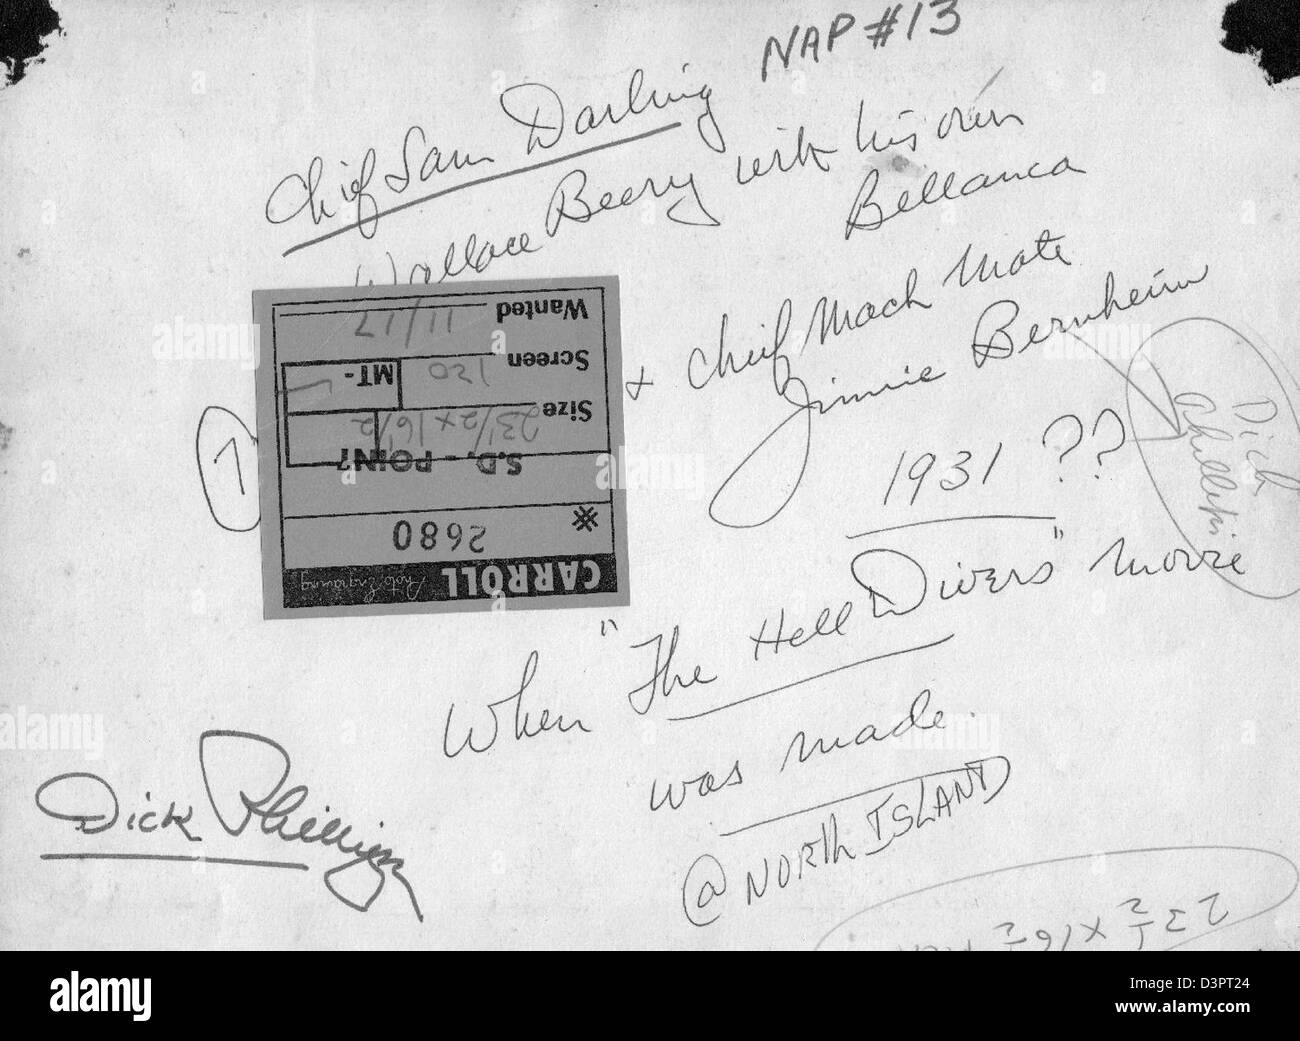 NAP #13
Chief Sam Darling
Wallace Beery with his own
Bellanca
& Chief Mach Mate
Jimmie Bernheim
1931 ??
When "The Hell Divers" movie
was made.
@ NORTH ISLAND
Dick Phillips
Dick Phillips
7
CARROLL
Photo Engraving
2680
S.D. - POINT
Size 23 1/2 x 16 1/2
Screen 120 MT-
Wanted 11/17
23 1/2 x 16 1/2
alamy
Image ID: D3PT24
www.alamy.com